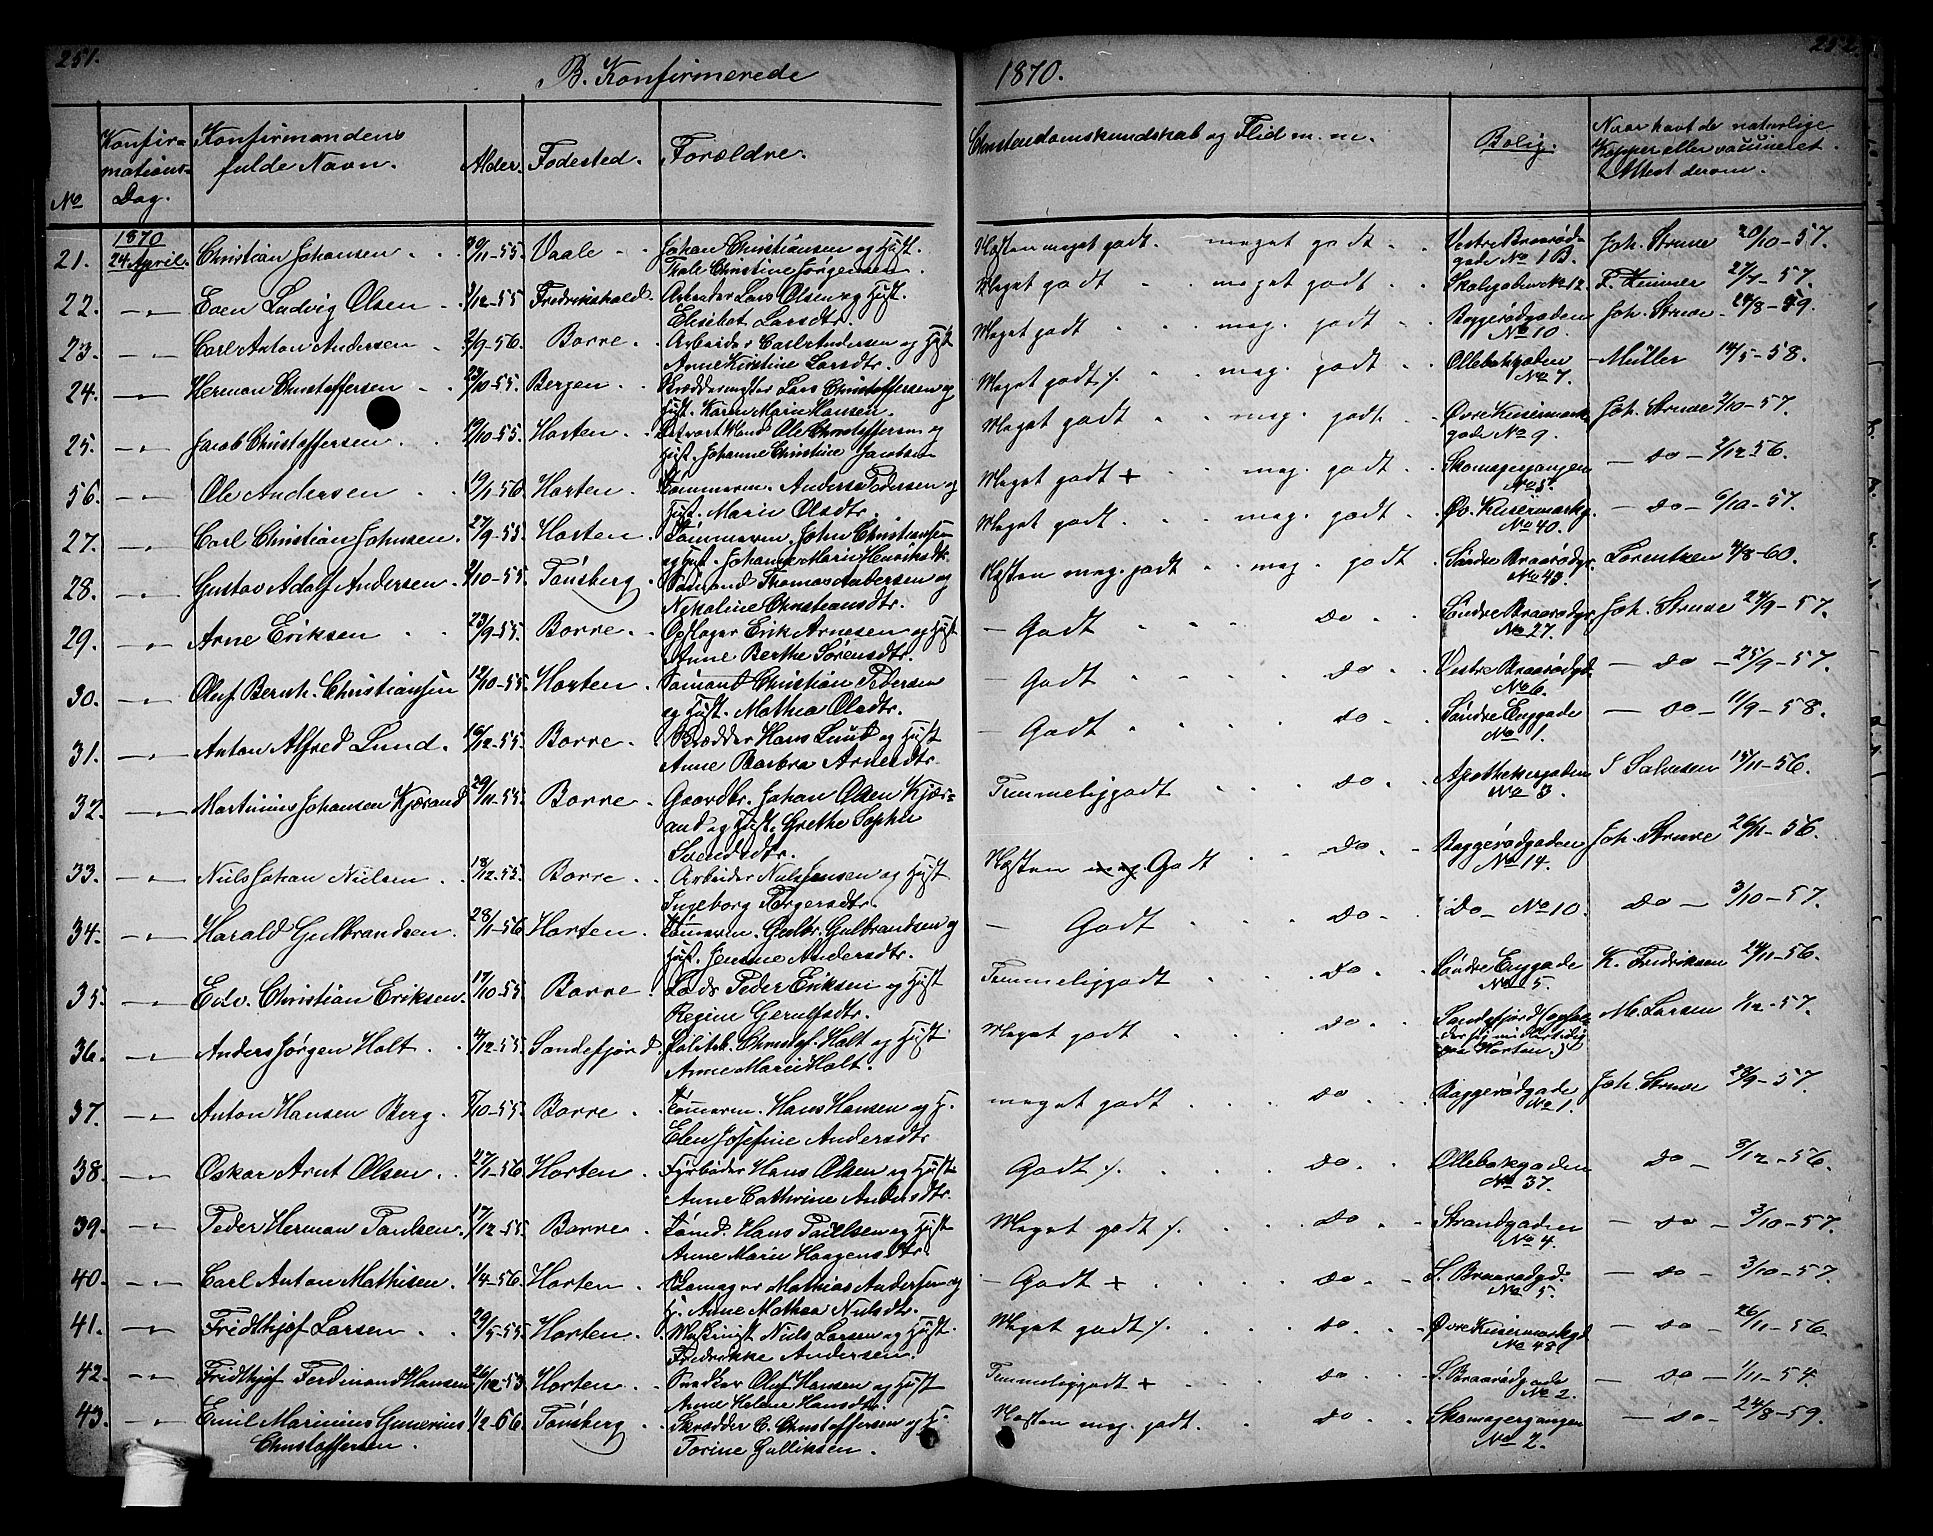 251.
B. Konfirmerede
1870.
252
No
Konfir-
mations-
Dag.
Konfirmandens
fulde Navn.
Alder.
Fødested.
Forældre.
Christendomskundskab og Flid m.m.
Bolig.
Naar havt de naturlige
Kopper eller vaccineret.
Attest derom.
1870
21. 24 April. Christian Johansen 30/11-55. Vaale Johan Christiansen og Hust. Næsten meget godt. meget godt Vestre Braarød- Joh. Struve 20/10-57.
Thale Christine Jørgensen gade No 1 B.
22. Even Ludvig Olsen 3/12-55 Fredrikshald. Arbeider Lars Olsen og Hust. Meget godt meget godt 27/7-57.
Elisebet Larsdtr.
23. Carl Anton Andersen 2/9-56. Borre. Arbeider Carl Andersen og Hust Meget godt meg. godt Baggerødgaden Joh. Struve 24/8-59.
Anne Kirstine Larsdtr. No 10.
24. Herman Christoffersen 29/10-55. Bergen Lars Christoffersen og Meget godt /. meg. godt Ollebakgaden Müller 14/5-58.
Hust. Karen Marie Hansen. No 7.
25. Jacob Christoffersen 19/10-55. Horten Ole Christoffersen og Meget godt meg. godt Øvre Keisermark- Joh. Struve 2/10-57.
Hust. Johanne Christine Jacobsen gade No 9.
56. Ole Andersen 19/1-56 Horten. Tømmerm. Anders Pedersen og Meget godt + meg. godt Skomagergangen do 2/12-56.
Hust. Marie Olsdtr. No 5.
27. Carl Christian Johnsen. 27/9-55. Horten Tømmerm. John Christiansen Meget godt meg. godt Øv. Keisermarkg. do 6/10-57.
og Hust. Johanne Marie Henriksdtr. No 40.
28. Gustav Adolf Andersen 2/10-55 Tønsberg Sømand Thomas Andersen og Næsten meg. godt meg. godt Søndre Braarødgd. Lorentzen 4/8-60.
Nikoline Christiansdtr. No 43.
29. Arne Eriksen 23/9-55. Borre Opslager Erik Arnesen og Hust Godt do Søndre Braarødgd. Joh. Struve 24/9-57.
Anne Berthe Sørensdtr. No 27.
30. Oluf Bernh. Christiansen 12/10-55. Horten Sømand Christian Pedersen Godt do Vestre Braarødgd. do 25/9-57.
og Hust. Mathea Olsdtr. No 6.
31. Anton Alfred Lund. 16/12-55. Borre. Skrædder Hans Lund og Hust Godt do Søndre Enggade do 11/9-58.
Anne Barbra Arnesdtr. No 1.
32. Martinius Johansen Kjærand 29/11-55. Borre Gaardbr. Johan Olsen Kjær- Temmelig godt do Apothekergaden S Salvesen 15/11-56.
and og Hust. Grethe Sophie No 3.
Svendsdtr.
33. Nils Johan Nielsen 18/12-55. Borre Arbeider Nils Jensen og Hust Næsten meg. Godt do Baggerødgaden Joh. Struve 26/11-56.
Ingeborg Torgersdtr. No 14.
34. Harald Gulbrandsen 28/1-56 Horten. Tømmerm. Gulbr. Gulbrandsen og Godt do Do No 10. do 3/10-57.
Hust. Jensine Andersdtr.
35. Edv. Christian Eriksen. 17/10-55. Borre Lods Peder Eriksen og Hust Temmelig godt do Søndre Enggade K. Fredriksen 24/11-56.
Regine Gerulfsdtr. No 5.
36. Anders Jørgen Holt 4/12-55 Sandefjord. Politib. Christof. Holt og Hust. Meget godt do Sandefjord (ophol- M. Larsen 1/12-57.
Anne Marie Holt. der sig midlertidig
paa Horten.)
37. Anton Hansen Berg. 5/10-55. Borre Tømmerm. Hans Hansen og H. meget godt do Baggerødgade Joh. Struve 29/9-57.
Elen Josefine Andersdtr. No 1.
38. Oskar Arnt Olsen 27/1-56 Horten Fyrbøder Hans Olsen og Hust Godt /. do Ollebakgaden do 3/12-56.
Anne Cathrine Andersdtr. No 37.
39. Peder Herman Paulsen. 17/12-55. Borre Tømd. Hans Paulsen og Hust Meget godt /. do Strandgaden do 3/10-57.
Anne Marie Haagensdtr. No 4.
40. Carl Anton Mathisen 1/4-56. Horten Skomager Mathias Andersen og Godt + do S. Braarødgd. do 3/10-57.
H. Anne Mathea Nilsdtr. No 5.
41. Fridthjof Larsen 29/5-55. Horten Maskinist Nils Larsen og Hust. Meget godt /. do Øvre Keisermarkgd do 26/11-56.
Fredrikke Andersen. No 48.
42. Fridthjof Ferdinand Hansen 26/12-53. Horten Snedker Oluf Hansen og Hust Temmelig godt + do S. Braarødgade do 1/11-54.
Anne Helene Hansdtr. No 2.
43. Emil Marinius Gunerius 1/2-56 Tønsberg Skrædder C. Christoffersen og H. Næsten meg. godt. do Skomagergangen do 24/8-59.
Christoffersen. Torine Gulliksen. No 2.